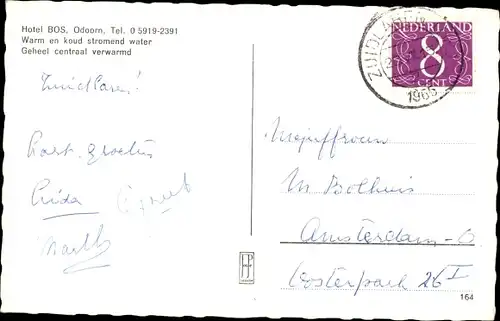 Hotel BOS, Odoorn, Tel. 0 5919-2391
Warm en koud stromend water
Geheel centraal verwarmd
Zuidlaren!
Hart. groeten
Martha
ZUIDLAREN
1965
NEDERLAND
8
CENT
Mejuffrouw
M Bolhuis
Amsterdam-O
Oosterpark 26 I
164